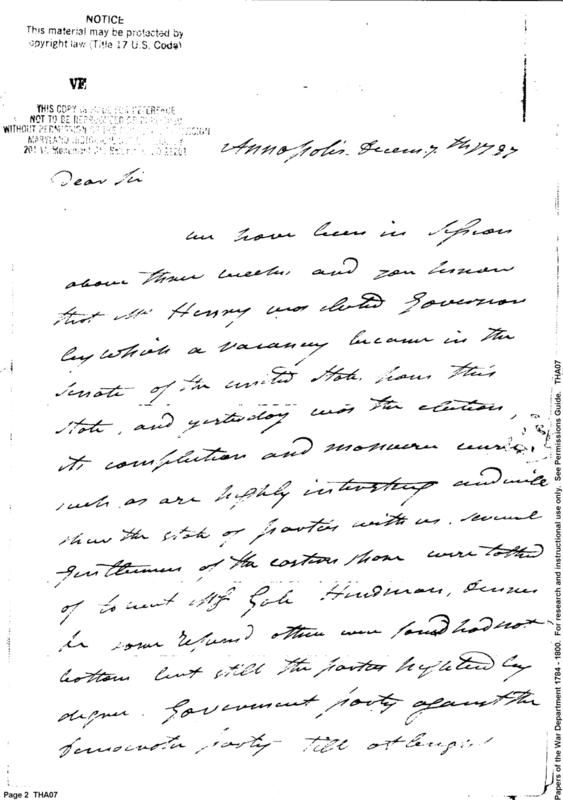 NOTICE
This material may be protected by
copyright law (Title 17 U.S. Code)
VF
THIS COPY IS MADE FOR REFERENCE
NOT TO BE REPRODUCED OR
WITHOUT PERMISSION OF THE
MARYLAND HISTORICAL
201 W. Monument St.
Annapolis. Decem. 7th 1797
Dear Sir
we have been in Session
above three weeks and you know
that Mr Henry was elected Governor
by which a vacancy became in the
Senate of the united States from this
state, and yesterday was the election,
its completion and manuvre were
such as are highly interesting and will
shew the state of parties with us. several
gentlemen of the eastern shore were talked
of to wit Gale Hindman, Dennis
&c some refused others were found had not
bottom but still the parties heightened by
degree. Government party against the
Democratic party till at length
Page 2 THA07
Papers of the War Department 1784 - 1800. For research and instructional use only. See Permissions Guide. THA07